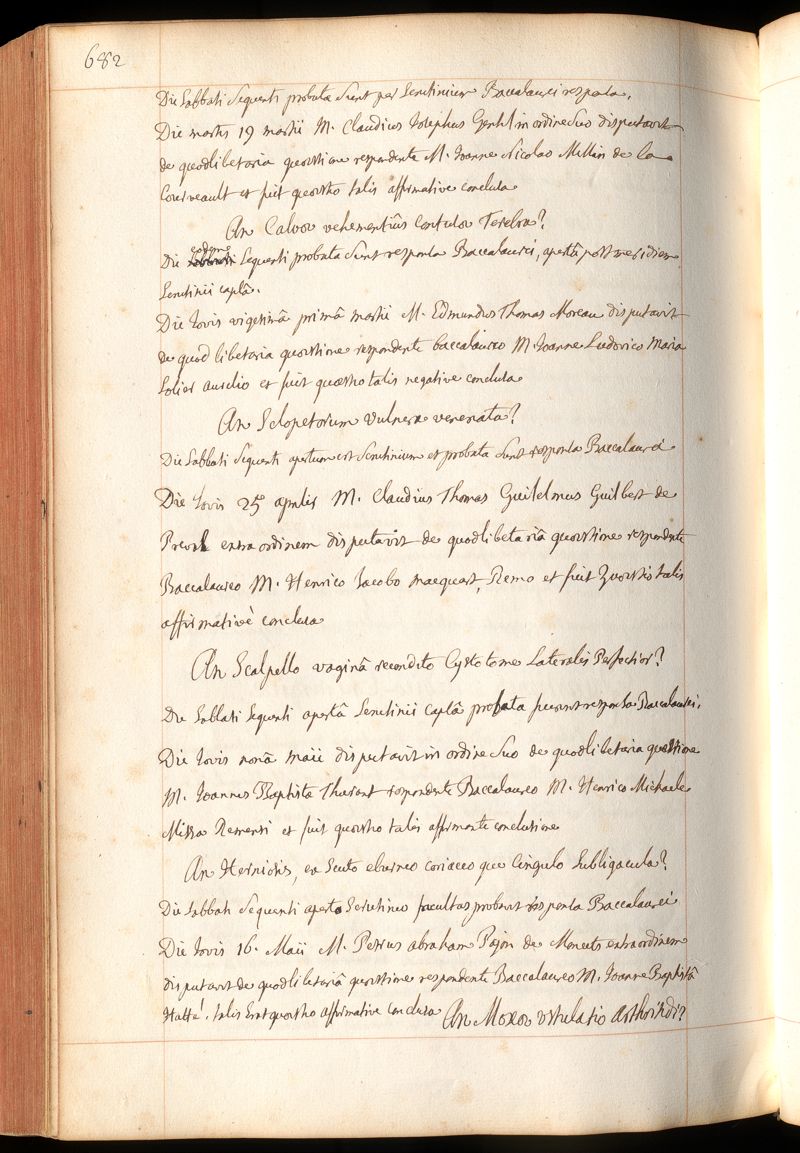 682
Die Sabbati Sequenti probata Sunt per Scrutinium Baccalaurei responsa.
Die martis 19 martii M. Claudius Josephus Gentil in ordine Suo disputavit
de quodlibetaria quoestione respondente M. Joanne Nicolao Millin de la
Courveault et fuit quoestio talis affirmative conclusa
An Calvoe vehementius Contusoe Terebra?
eodem
Die Sequenti probata Sunt responsa Baccalaurei, apertâ post meridiem
Scrutinii capsâ.
Die Jovis vigesimâ primâ martii M. Edmundus Thomas Moreau disputavit
de quodlibetaria quoestione respondente baccalaureo M. Joanne Ludovico Maria
Solier aurelio et fuit quæstio talis negative conclusa
An Sclopetorum vulnera venenata?
Die Sabbati Sequenti apertum est Scrutinium et probata Sunt responsa Baccalaurei
Die Jovis 25â aprilis M. Claudius Thomas Guilelmus Guilbert de
Preval extra ordinem disputavit de quodlibetariâ quoestione respondente
Baccalaureo M. Henrico Jacobo macquart, Remo et fuit Quoestio talis
affirmativè conclusa
An Scalpello vaginâ recondito Cystotome Lateralis Perfectior?
Die Sabbati Sequenti apertâ Scrutinii capsâ probata fuerunt responsa Baccalaurei.
Die Jovis nonâ maii disputavit in ordine Suo de quodlibetaria quoestione
M. Joannes Baptista Thurant respondente Baccalaureo M. Henrico Michaele
Missa Remensi et fuit quoestio talis affirmante conclusione
An Herniosis, ex Scuto eburneo coriaceo que Cingulo Subligacula?
Die Sabbati Sequenti aperto Scrutinio facultas probavit responsa Baccalaurei
Die Jovis 16. Maii M. Petrus abraham Pajon de Moncets extra ordinem
disputavit de quodlibetariâ quoestione respondente Baccalaureo M. Joanne Baptistâ
Hatté. talis Erat quoestio affirmative conclusa An Moxoe ustulatio Arthritidi?